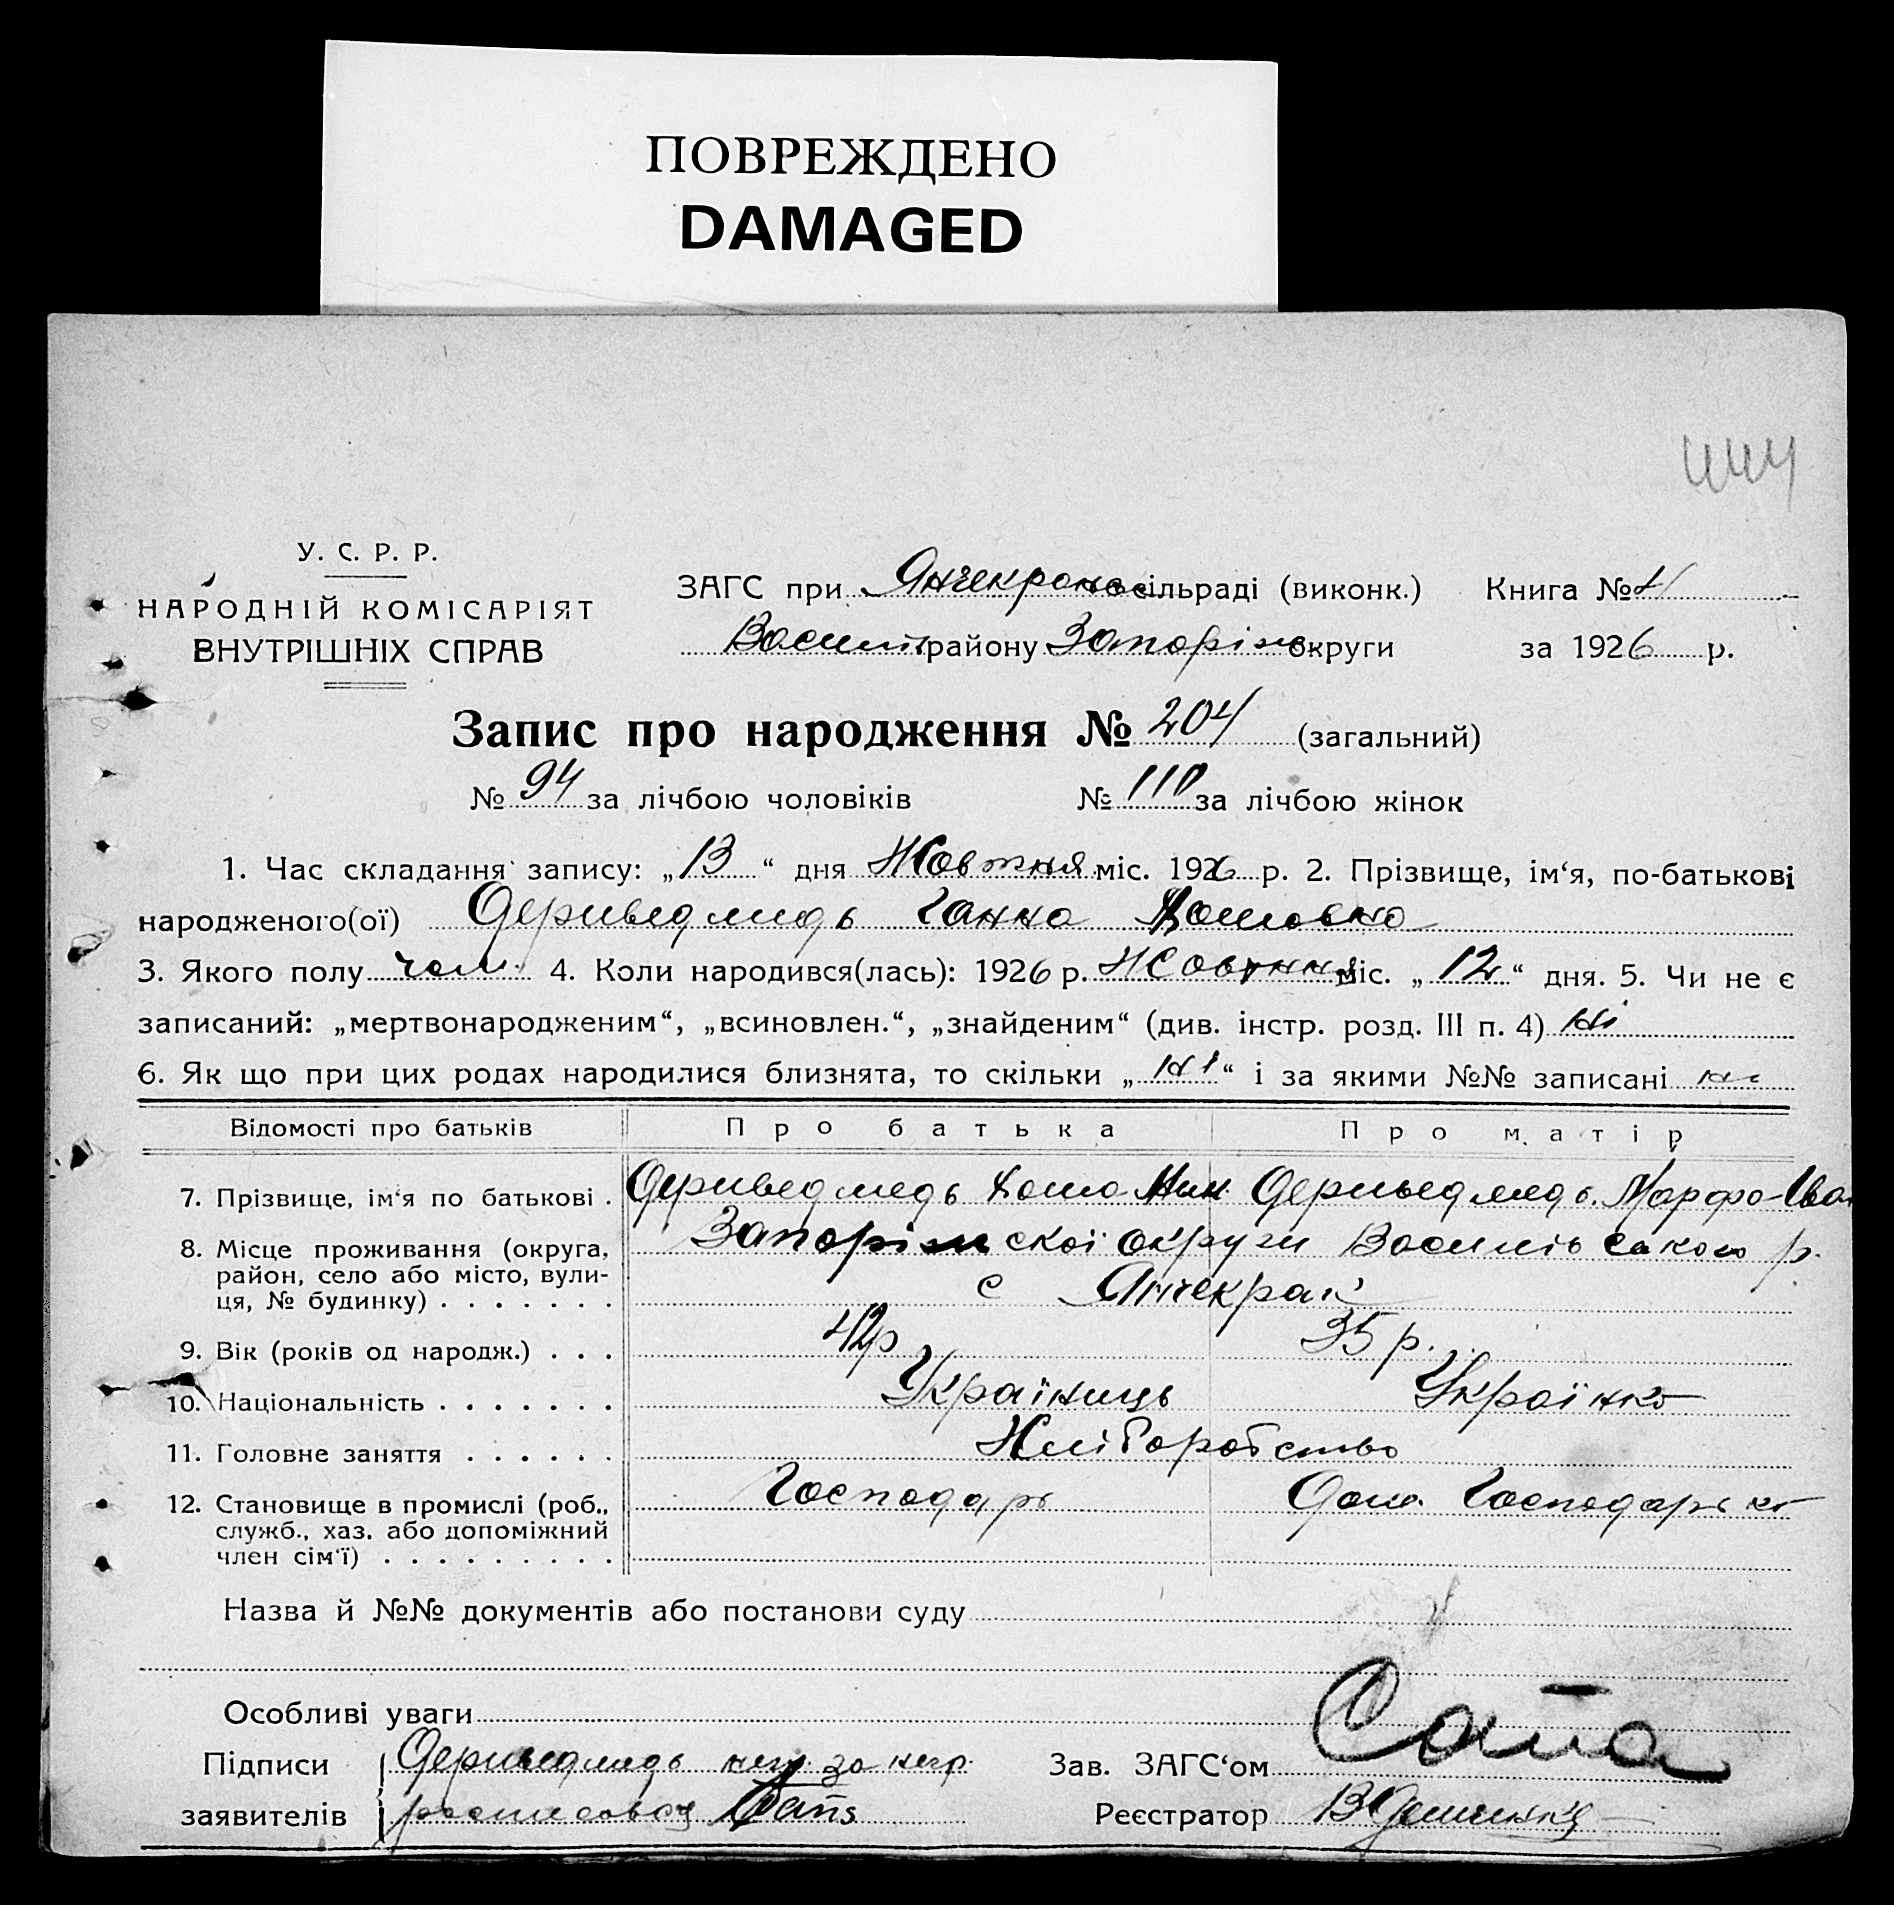 ПОВРЕЖДЕНО
DAMAGED
444
У. С. Р. Р.
НАРОДНІЙ КОМІСАРІЯТ
ВНУТРІШНІХ СПРАВ
ЗАГС при Янчекраксь сільраді (виконк.) Книга №
Василів району Запоріж округи за 1926 р.
Запис про народження № 204 (загальний)
№ 94 за лічбою чоловіків № 110 за лічбою жінок
1. Час складання запису: „13“ дня Жовтня міс. 1926 р. 2. Прізвище, ім‘я, по-батькові
народженого(ої) Дериведмидь Ганна
3. Якого полу 4. Коли народився(лась): 1926 р. Жовтня міс. „12“ дня. 5. Чи не є
записаний: „мертвонародженим“, „всиновлен.“, „знайденим“ (див. інстр. розд. III п. 4) ні
6. Як що при цих родах народилися близнята, то скільки „ні“ і за якими №№ записані ні
Відомості про батьків Про батька Про матір
7. Прізвище, ім‘я по батькові . Дериведмедь Хома Дериведмедь Марфа Іван
8. Місце проживання (округа, Запоріжскої округи Василівського р.
район, село або місто, вули-
ця, № будинку) . . . . . . . с Янчекрак
9. Вік (років од народж.) . . . 42р 35 р.
10. Національність . . . . . . . Україниць Українка
11. Головне заняття . . . . . . Хліборобство
12. Становище в промислі (роб., Господарь Дом. Господарька
служб., хаз. або допоміжний
член сім‘ї) . . . . . . . . .
Назва й №№ документів або постанови суду
Особливі уваги
Підписи Дериведмедь негр. за негр. Зав. ЗАГС‘ом Сапа
заявителів росписовсц Реєстратор